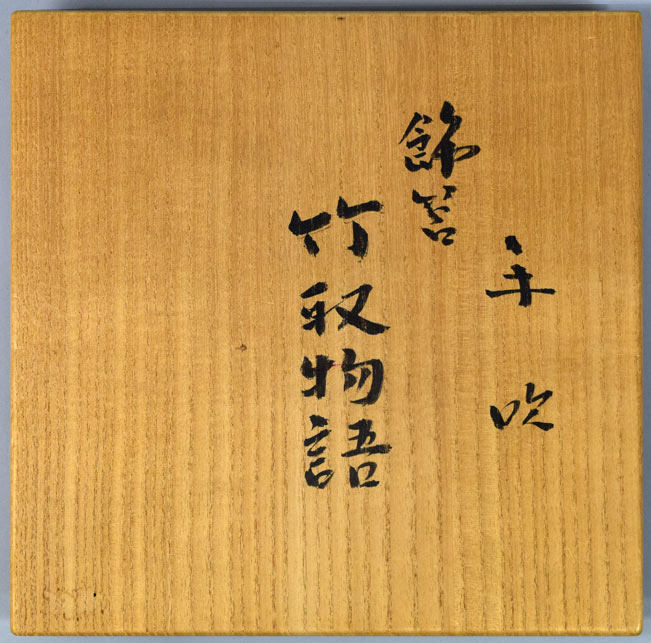 手吹
飾筥
竹取物語